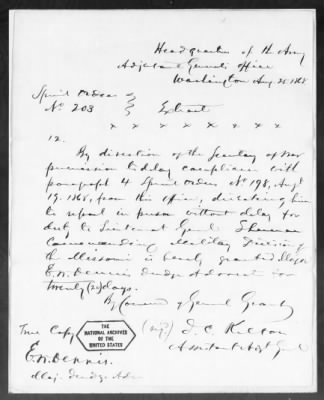 Headquarters of the Army
Adjutant General's Office
Washington Aug 25 1868
Special Orders
No 203
Extract
x x x x x x x x
12.
By direction of the Secretary of War
permission to delay compliance with
paragraph 4 Special Orders No 198, Augt
19. 1868, from this office, directing him
to report in person without delay for
duty to Lieutenant Genl. Sherman
Commanding Military Division of
the Missouri is hereby granted Major
E. W. Dennis Judge Advocate for
twenty (20) days.
By Command of General Grant
(sgd) J. C. Kelton
Assistant Adjt Genl
True Copy
E. W. Dennis.
Maj. Judge Adv
THE
NATIONAL ARCHIVES
OF THE
UNITED STATES